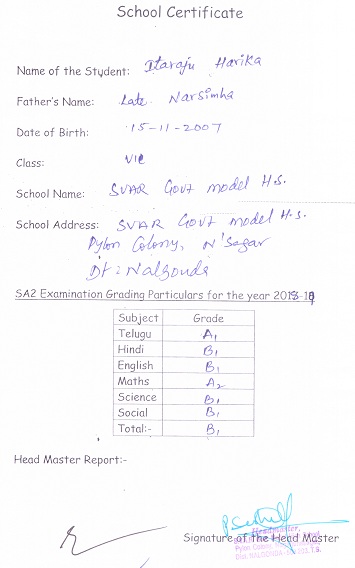 School Certificate
Name of the Student: Itaraju Harika
Father's Name: Late. Narsimha
Date of Birth: 15-11-2007
Class: VII
School Name: SVAR Govt model H.S.
School Address: SVAR Govt model H.S.
Pylon Colony, N'Sagar
Dt: Nalgonda
SA2 Examination Grading Particulars for the year 2018-19
Subject Grade
Telugu A1
Hindi B1
English B1
Maths A2
Science B1
Social B1
Total:- B1
Head Master Report:-
Headmaster,
Signature of the Head Master
Pylon Colony,
Dist. NALGONDA